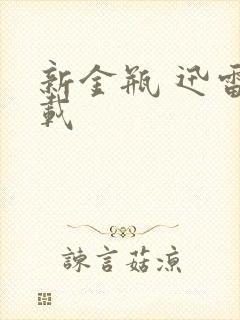 新金瓶 迅雷
載
諫言菇凉